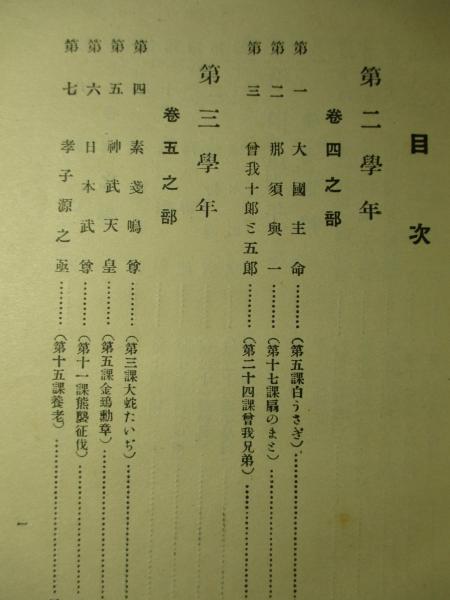 目次
第二學年
卷四之部
第一 大國主命………(第五課白うさぎ)………
第二 那須與一………(第十七課扇のまと)………
第三 曾我十郎と五郎………(第二十四課曾我兄弟)………
第三學年
卷五之部
第四 素戔嗚尊………(第三課大蛇たいぢ)………
第五 神武天皇………(第五課金鵄勳章)………
第六 日本武尊………(第十一課熊襲征伐)………
第七 孝子源之亟………(第十五課養老)………
一